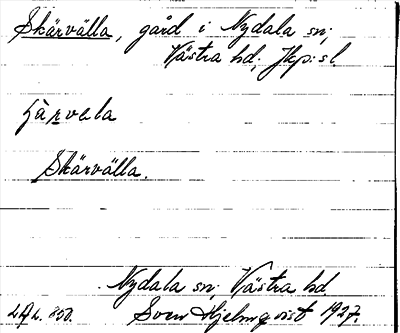 Skärvälla, gård i Nydala sn;
Västra hd, Jkp:s l.
Skärvälla.
Nydala sn; Västra hd
Sven Hjelmqvist 1927.